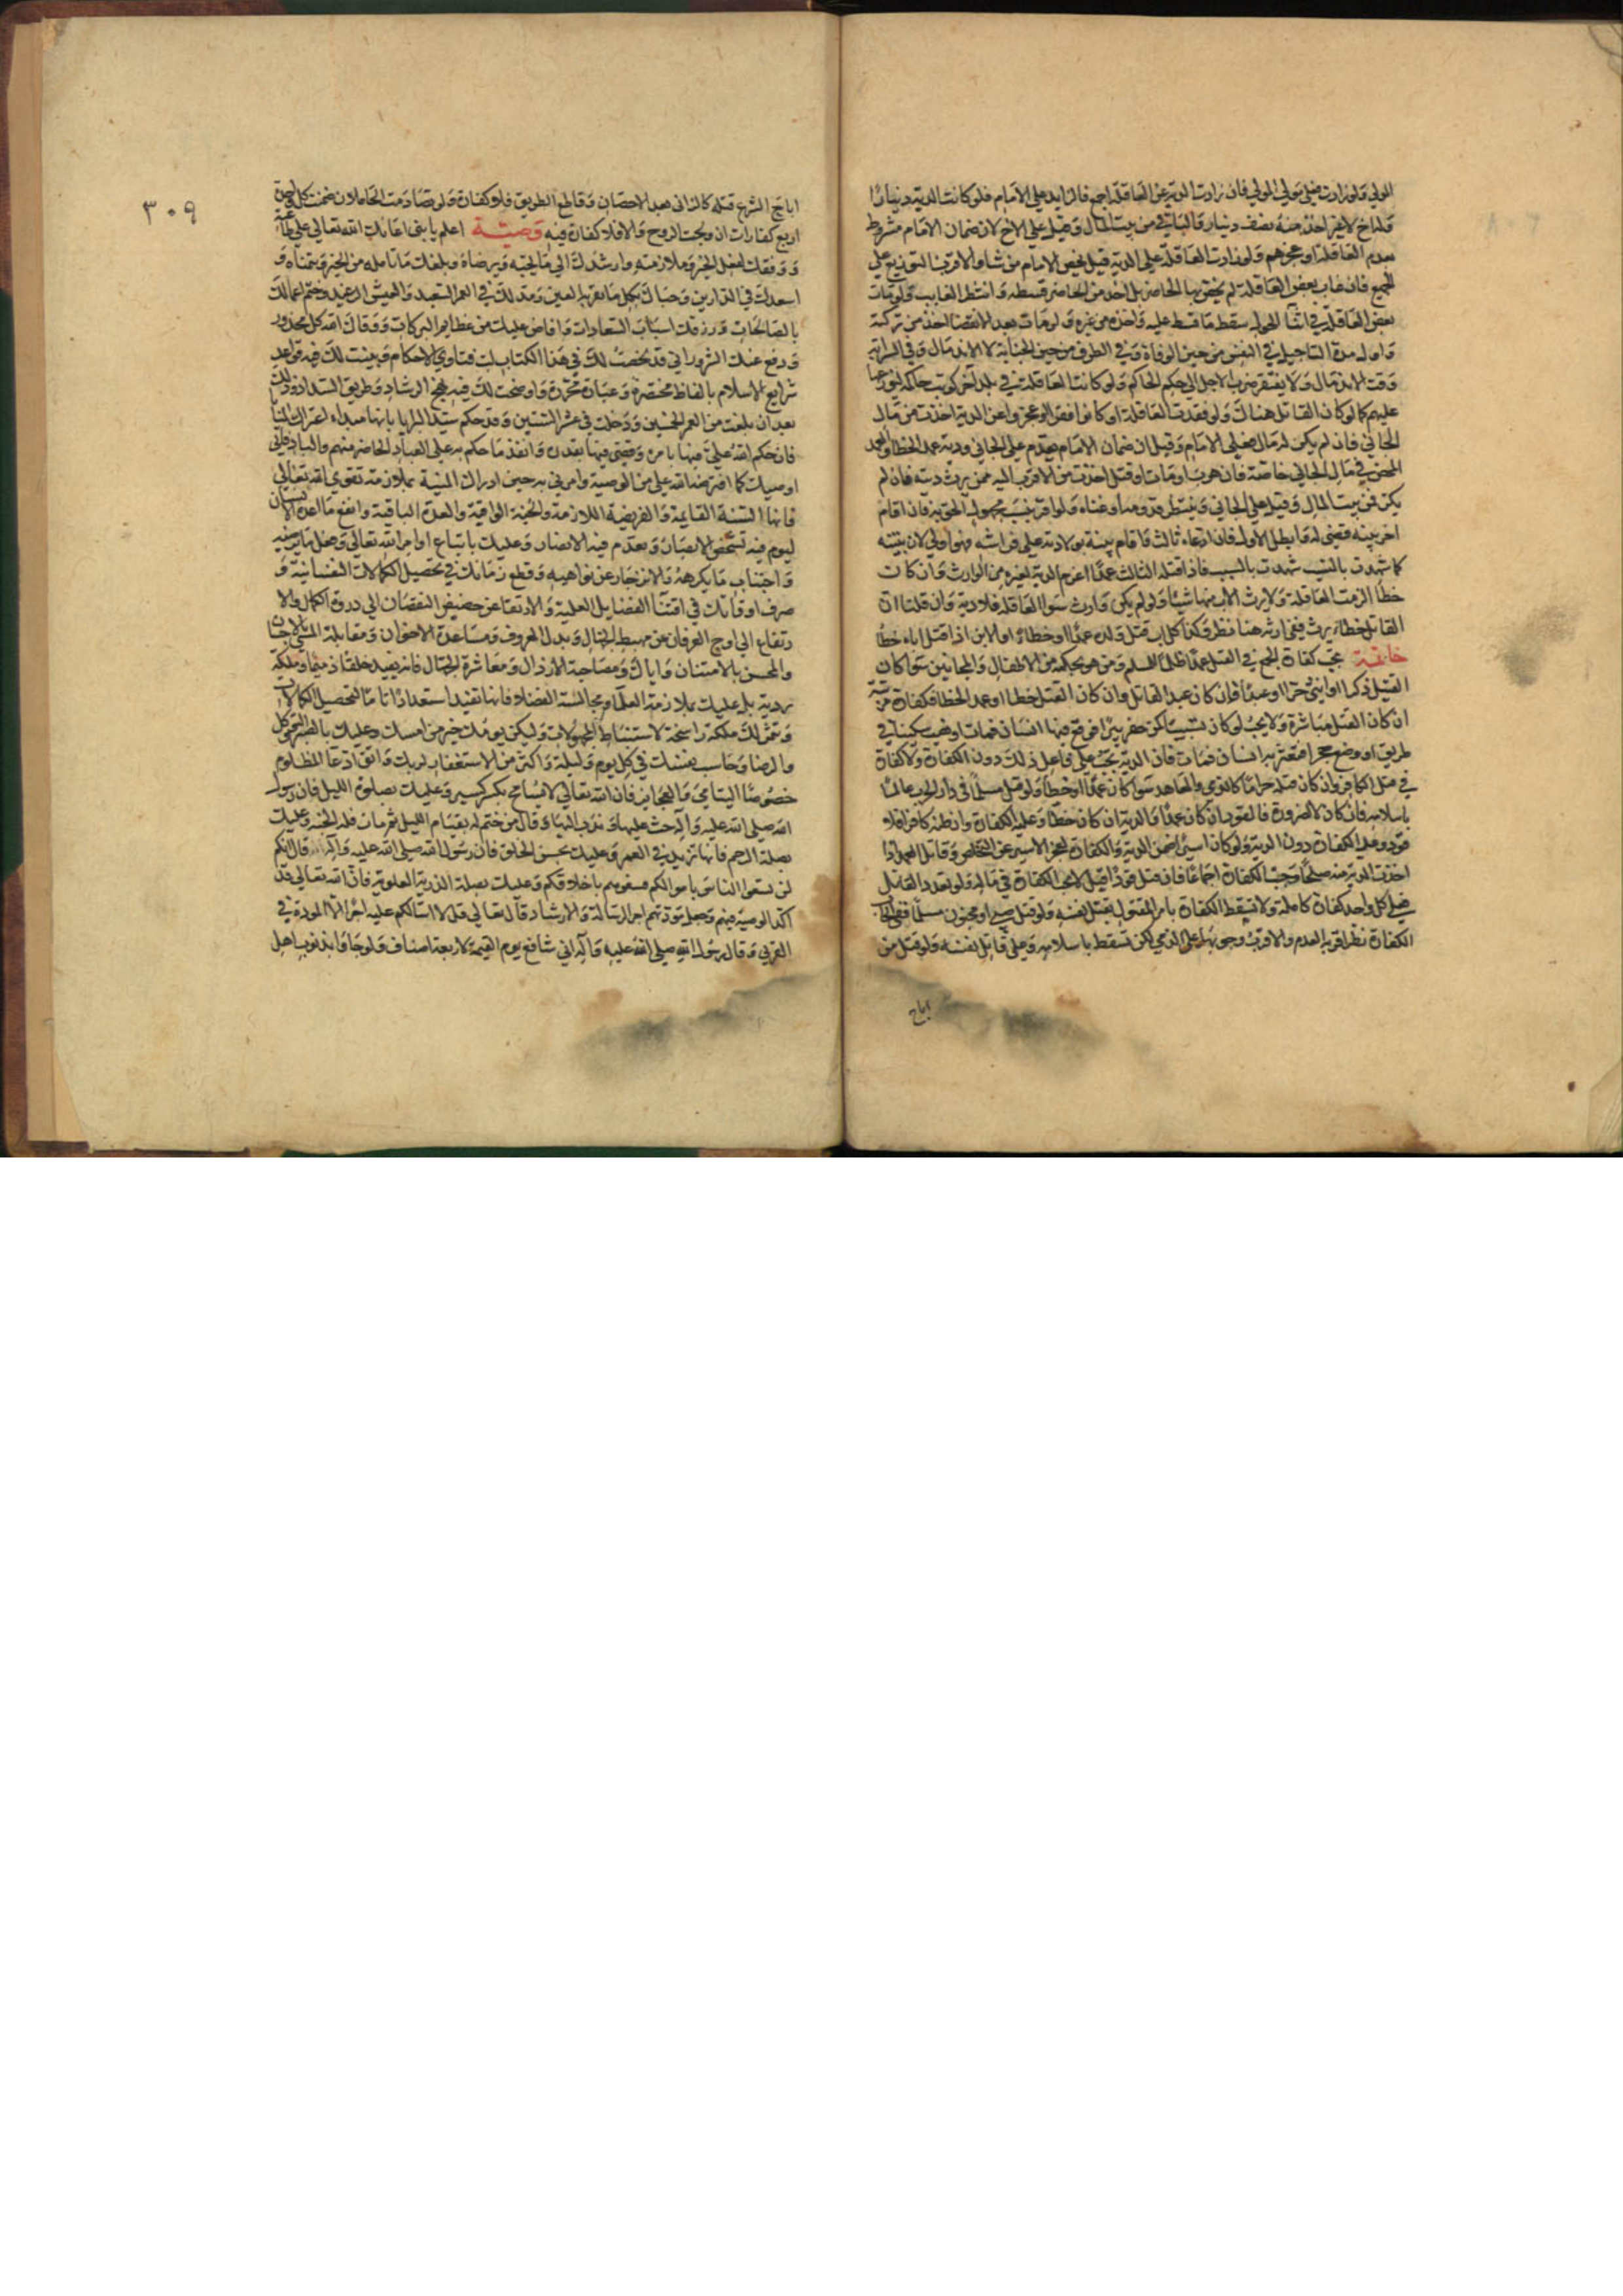 المولى ولو زادت فعلى مولى المولى فان زادت الدية عن العاقلة اجمع فالزايد على الامام فلو كانت الدية دينارا
وله اخ لا غير اخذ منه نصف دينار والباقي من بيت المال وقيل على الاخ لان ضمان الامام مشروط
بعدم العاقلة او عجزهم ولو زادت العاقلة على الدية قيل يخص الامام من شاء والاقرب التوزيع على
الجميع فان غاب بعض العاقلة لم يختص بها الحاضر بل اخذ من الحاضر قسطه وانتظر الغايب ولو مات
بعض العاقلة في اثنا الحول سقط ما قسط عليه واخذ من غيره ولو مات بعد الانقضا اخذ من تركته
واول مدة التاجيل في النفس من حين الوفاة وفي الطرف من حين الجناية لا الاندمال وفي السراية
وقت الاندمال ولا يفتقر ضرب الاجل الى حكم الحاكم ولو كانت العاقلة في بلد آخر كوتب حاكمه ليوزعها
عليهم كما لو كان القاتل هناك ولو فقدت العاقلة او كانوا فقرا او عجزوا عن الدية اخذت من مال
الجاني فان لم يكن له مال فعلى الامام وقيل ان ضمان الامام مقدم على الجاني ودية عمد الخطا والعمد
المحض في مال الجاني خاصة فان هرب او مات او قتل اخذت من الاقرب اليه ممن يرث ديته فان لم
يكن فمن بيت المال وقيل على الجاني وينتظر قدومه او غناه ولو اقر بنسب مجهول الحق به فان اقام
اخر بينة قضي له وابطل الاول فان ادعاه ثالث واقام بينة بولادته على فراشه فهو اولى لان بينته
كما شهدت بالنسب شهدت بالسبب فاذا قتله الثالث عمدا اغرم الدية لغيره من الوارث وان كانت
خطا الزمت العاقلة ولا يرث الاب منها شيئا ولو لم يكن وارث سوا العاقلة فلا دية وان قلنا ان
القاتل خطا يرث ففي ارثه هنا نظر وكذا كل اب قتل ولده عمدا او خطا او الابن اذا قتل اباه خطا
خاتمة تجب كفارة الجمع في القتل عمدا ظلما للمسلم ومن هو بحكمه من الاطفال والمجانين سوا كان
القتيل ذكرا او انثى حرا او عبدا وان كان عبد القاتل وان كان القتل خطا او عمد الخطا فكفارة مرتبة
ان كان القتل مباشرة ولا يجب لو كان تسبيبا كمن حفر بيرا فوقع فيها انسان فمات او نصب سكينا في
طريق او وضع حجرا فعثر به انسان فمات فان الدية تجب على فاعل ذلك دون الكفارة ولا كفارة
في قتل الكافر وان كان قتله حراما كالذمي والمعاهد سوا كان عمدا او خطا ولو قتل مسلما في دار الحرب عالما
باسلامه فان كان لا لضرورة فالقود ان كان عمدا والدية ان كان خطا وعليه الكفارة وان ظنه كافرا فلا
قود وعليه الكفارة دون الدية ولو كان اسيرا ضمن الدية والكفارة لعجز الاسير عن التخلص وقاتل العمد اذا
اخذت الدية منه صلحا وجبت الكفارة اجماعا فان قتل قودا قيل لا تجب الكفارة في ماله ولو تعدد القاتل
فعلى كل واحد كفارة كاملة ولا تسقط الكفارة بامر المقتول بقتل نفسه ولو قتل صبي او مجنون مسلما ففي ايجاب
الكفارة نظر اقربه العدم والاقرب وجوبها على الذمي لكن تسقط باسلامه وعلى قاتل نفسه ولو قتل من
اباح
٣٠٩
اباح الشرع قتله كالزاني بعد الاحصان وقاطع الطريق فلا كفارة ولو تصادمت الحاملان ضمنت كل واحدة
اربع كفارات ان ولجت الروح والا فلا كفارة فيه وصية اعلم يا بني اعانك الله تعالى على طاعته
ووفقك لفعل الخير وملازمته وارشدك الى ما يحبه ويرضاه وبلغك ما تامله من الخير وتتمناه و
اسعدك في الدارين وحباك بكل ما تقر به العين ومد لك في العمر السعيد والعيش الرغيد وختم اعمالك
بالصالحات ورزقك اسباب السعادات وافاض عليك من عظايم البركات ووقاك الله كل محذور
ودفع عنك الشرور اني قد لخصت لك في هذا الكتاب لب فتاوى الاحكام وبينت لك فيه قواعد
شرايع الاسلام بالفاظ مختصرة وعبارة محررة واوضحت لك فيه نهج الرشاد وطريق السداد وذلك
بعد ان بلغت من العمر الخمسين ودخلت في عشر الستين وقد حكم سيد البرايا بانها مبداء اعتراك المنايا
فان حكم الله علي فيها بامره وقضى فيها بقدره وانفذ ما حكم به على العباد الحاضر منهم والباد فاني
اوصيك كما افترضه الله علي من الوصية وامرني به حين ادراك المنية بملازمة تقوى الله تعالى
فانها السنة القايمة والفريضة اللازمة والجنة الواقية والعدة الباقية وانفع ما اعده الانسان
ليوم فيه تشخص الابصار ويعدم فيه الانصار وعليك باتباع اوامر الله تعالى وفعل ما يرضيه
واجتناب ما يكرهه والانزجار عن نواهيه وقطع زمانك في تحصيل الكمالات النفسانية و
صرف اوقاتك في اقتنآ الفضايل العلمية والارتقا عن حضيض النقصان الى ذروة الكمال والا
رتفاع الى اوج العرفان عن مهبط الجهال وبذل المعروف ومساعدة الاخوان ومقابلة المسئ بالاحسان
والمحسن بالامتنان واياك ومصاحبة الارذال ومعاشرة الجهال فانه يفيد خلقا ذميما وملكة
ردية بل عليك بملازمة العلمآ ومجالسة الفضلا فانها تفيد استعدادا تاما لتحصيل الكمالات
وتثمر لك ملكة راسخة لاستنباط المجهولات وليكن يومك خيرا من امسك وعليك بالصبر والتوكل
والرضا وحاسب نفسك في كل يوم وليلة واكثر من الاستغفار لربك واتق دعآ المظلوم
خصوصا اليتامى والعجايز فان الله تعالى لا يسامح بكسر كسير وعليك بصلوة الليل فان رسول
الله صلى الله عليه وآله حث عليها وندب اليها وقال من ختم له بقيام الليل ثم مات فله الجنة وعليك
بصلة الرحم فانها تزيد في العمر وعليك بحسن الخلق فان رسول الله صلى الله عليه وآله قال انكم
لن تسعوا الناس باموالكم فسعوهم باخلاقكم وعليك بصلة الذرية العلوية فان الله تعالى قد
اكد الوصية فيهم وجعل مودتهم اجر الرسالة والارشاد قال تعالى قل لا اسالكم عليه اجرا الا المودة في
القربى وقال رسول الله صلى الله عليه وآله اني شافع يوم القيمة لاربعة اصناف ولو جاؤا بذنوب اهل